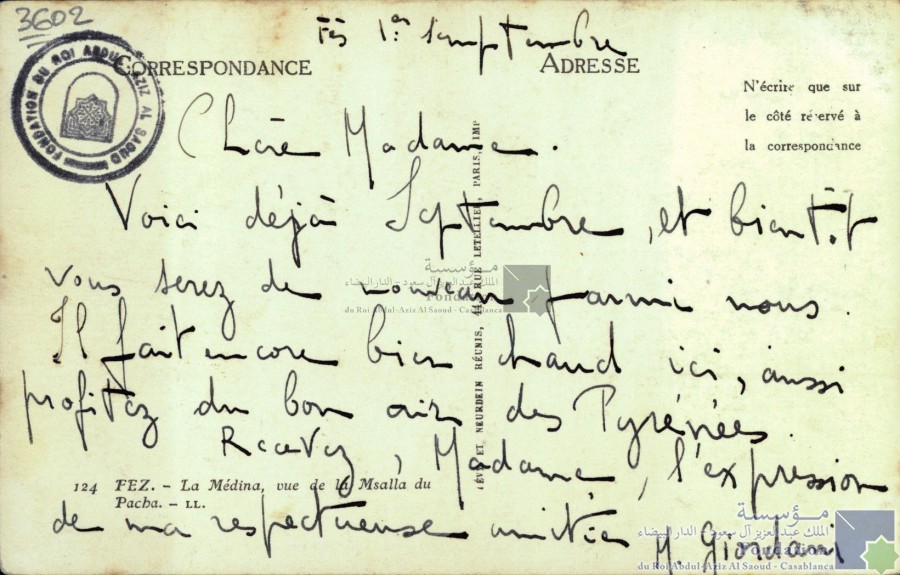 3602
Fès 1er Semptembre
CORRESPONDANCE
ADRESSE
FONDATION DU ROI ABDUL AZIZ AL SAOUD
N'écrire que sur
le côté réservé à
la correspondance
Chère Madame.
Voici déjà Septembre, et bientôt
vous serez de nouveau parmi nous.
Il fait encore bien chaud ici, aussi
profitez du bon air des Pyrénées.
Recevez, Madame, l'expression
de ma respectueuse amitié
M. Giordani
124 FEZ. - La Médina, vue de la Msalla du
Pacha. - LL.
LÉVY ET NEURDEIN RÉUNIS, 44, RUE LETELLIER, PARIS, IMP
مؤسسة
الملك عبد العزيز آل سعود - الدار البيضاء
Fondation
du Roi Abdul-Aziz Al Saoud - Casablanca
مؤسسة
الملك عبد العزيز آل سعود - الدار البيضاء
Fondation
du Roi Abdul-Aziz Al Saoud - Casablanca